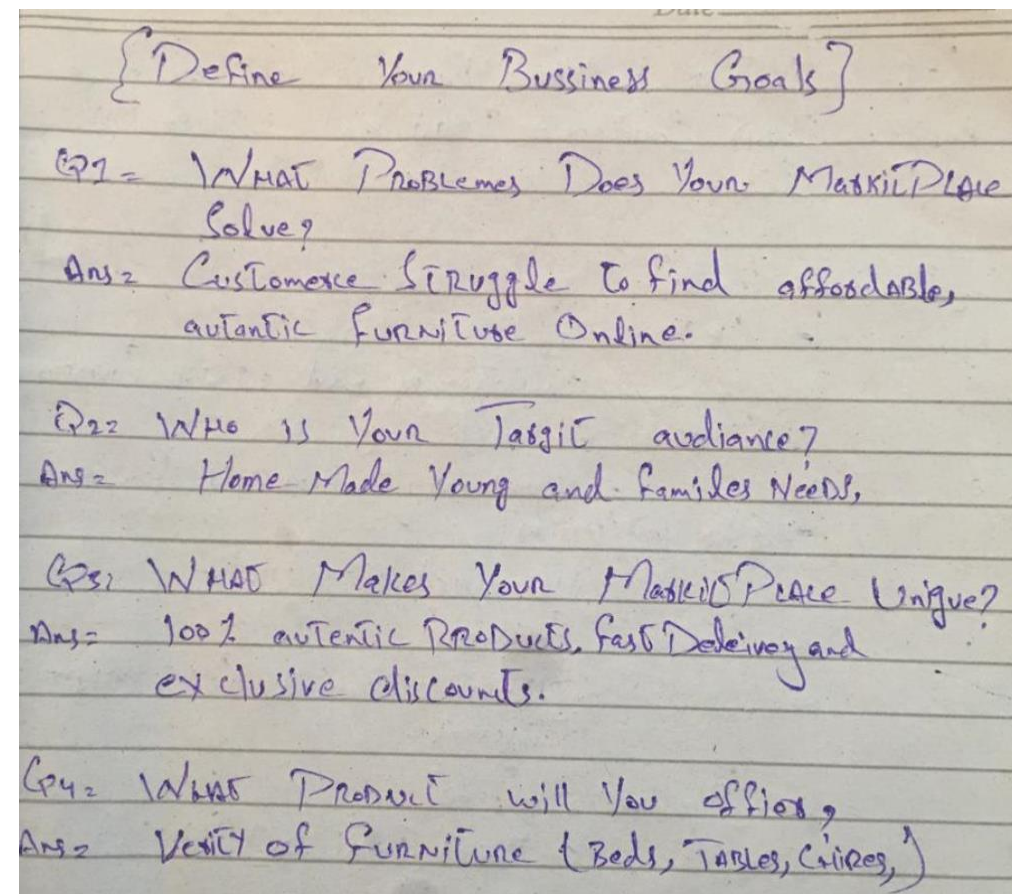 {Define Your Bussiness Goals}
Q1= WHAT PROBLemes Does Your MarkitPLAce
Solve?
Ans= Customerce STRUggle to find affordABle,
autantic FURNiTure Online.
Q2= WHo is Your Targit audiance?
Ans= Home Made Young and familes NeeDs,
Q3= WHAT Makes Your MarkitPLAce Unique?
Ans= 100% auTentic PRODucts, fast Deleivey and
exclusive discounts.
Q4= WHAT PRODucT will You offier?
Ans= Verity of FURNiTure (Beds, TABLes, CHiRes,)